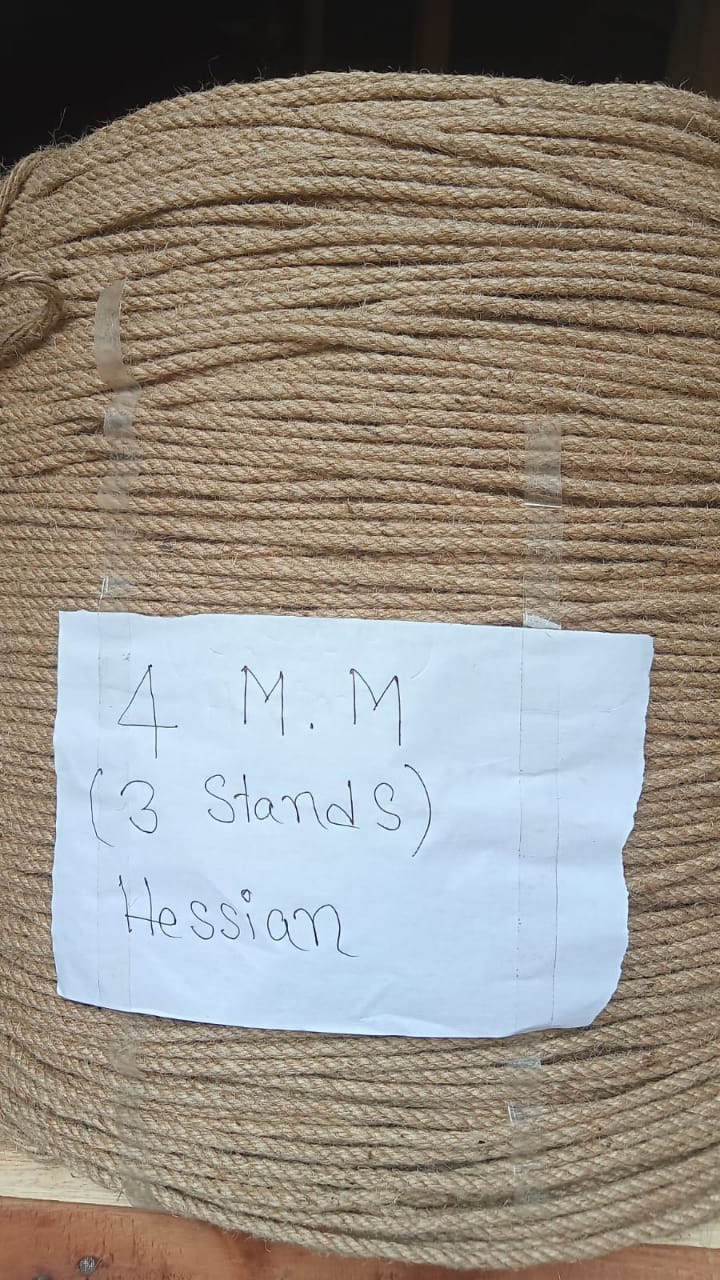 4 M.M
(3 Stands)
Hessian